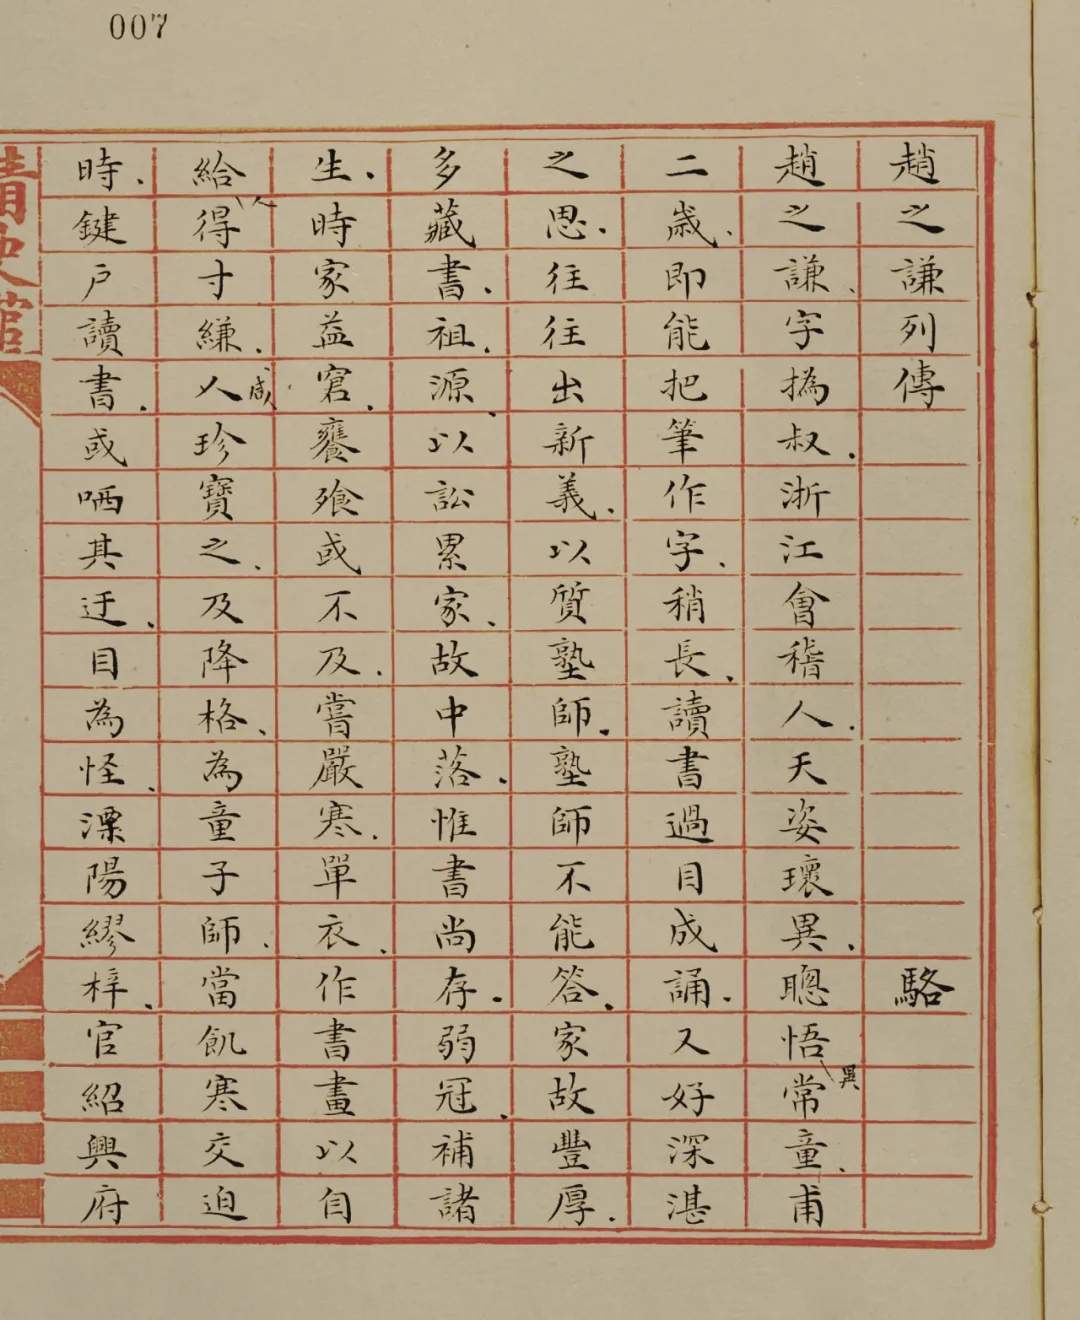 007
趙之謙列傳 駱
趙之謙、字撝叔、浙江會稽人、天姿瓌異、聰悟異常童、甫
二歲、即能把筆作字、稍長、讀書過目成誦、又好深湛
之思、往往出新義、以質塾師、塾師不能答、家故豐厚、
多藏書、祖、源、以訟累家、故中落、惟書尚存、弱冠、補諸
生、時家益窘、饔飧或不及、嘗嚴寒、單衣、作書畫以自
給、人得寸縑、人咸珍寶之、及降格、為童子師、當飢寒交迫
時、鍵戶讀書、或哂其迂、目為怪、溧陽繆梓、官紹興府
清史館